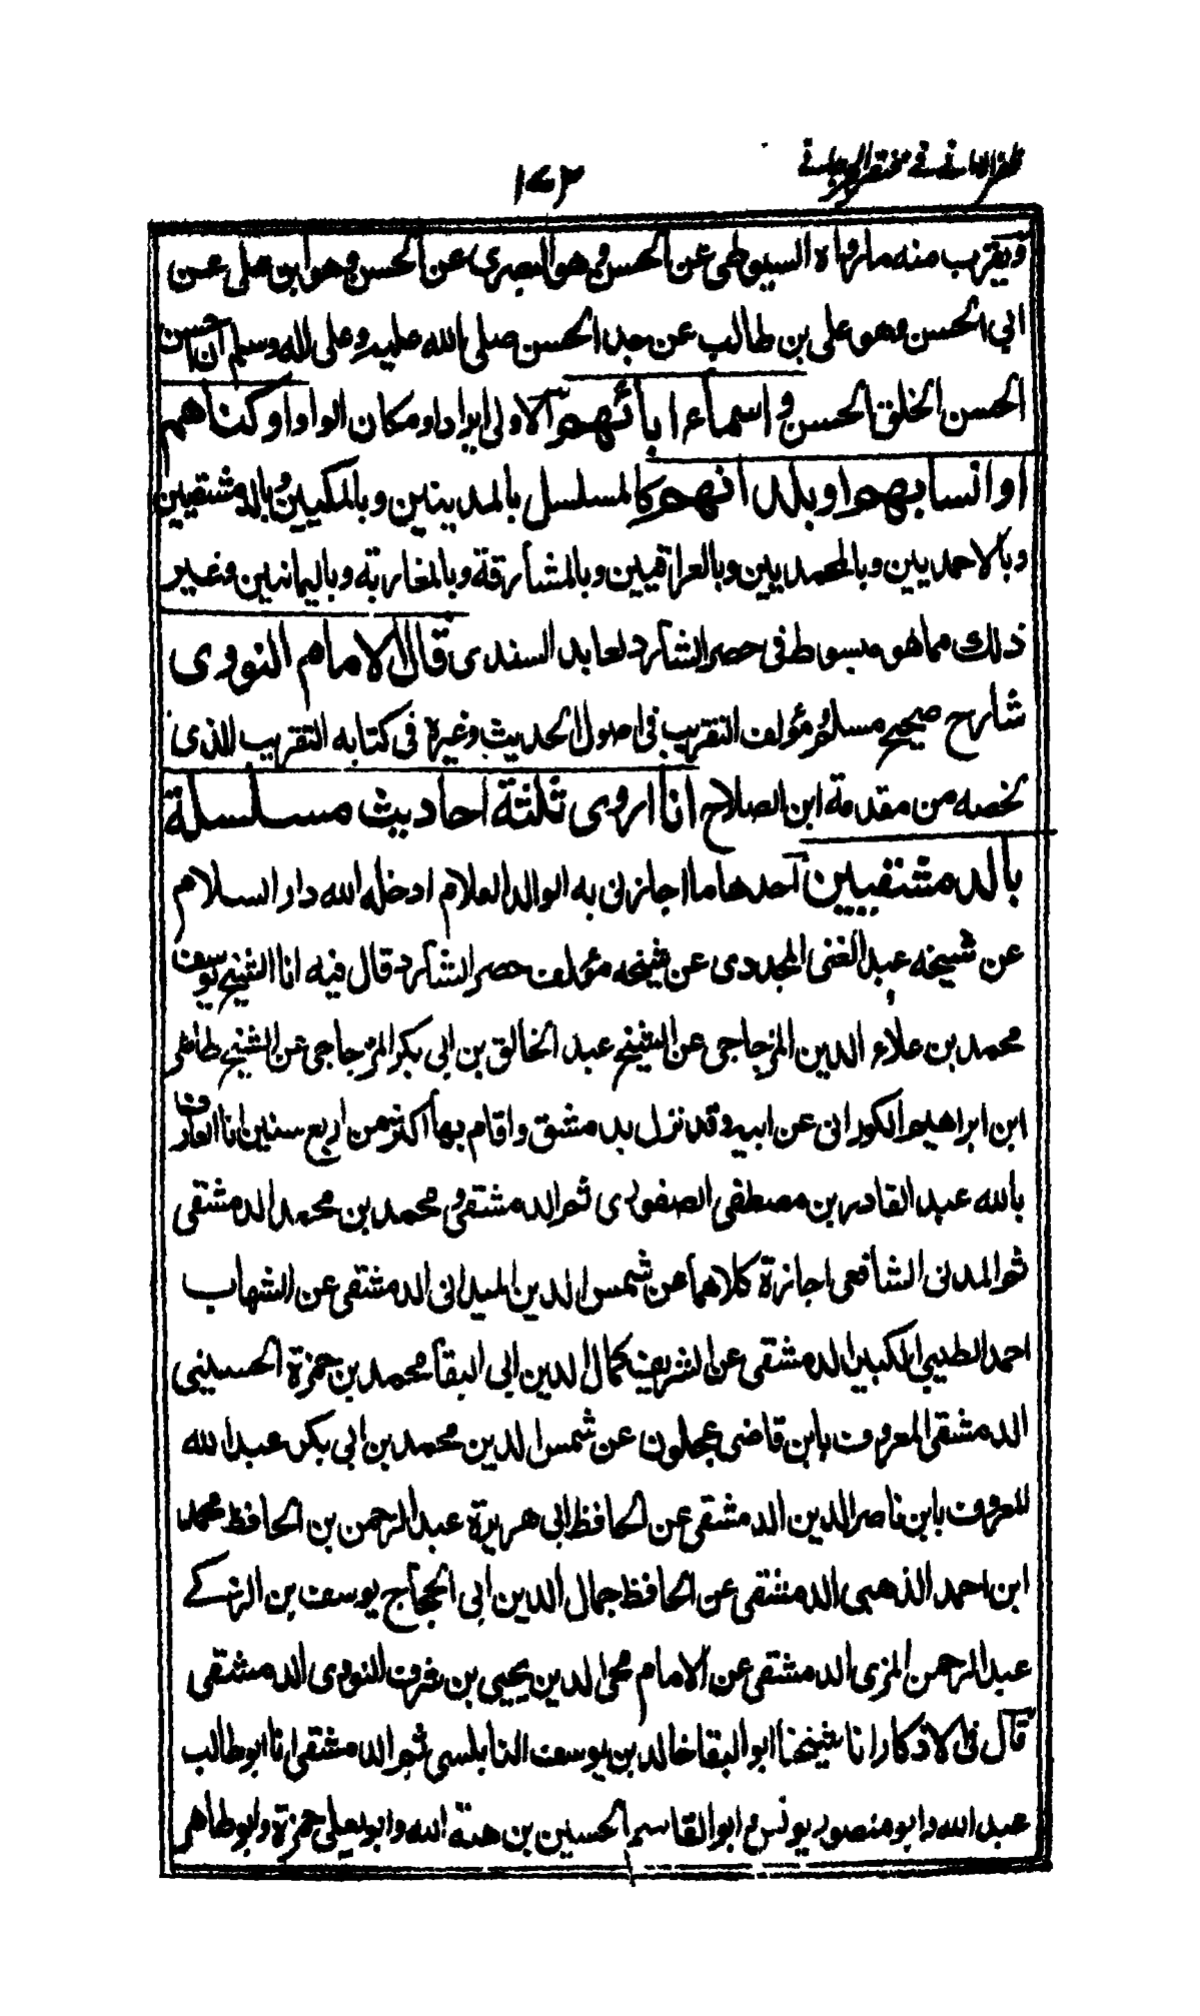 ظفر الاماني في مختصر الجرجاني
١٧٢
ويقرب منه ما رواه السيوطي عن الحسن وهو البصرى عن الحسن وهو ابن على عن
ابي الحسن وهو على بن طالب عن جد الحسن صلى الله عليه وعلى اله وسلم ان احسن
الحسن الخلق الحسن و اسماء ابائهم الاولى ايراد او مكان الواو او كناهم
او انسابهم او بلدانهم كالمسلسل بالمدينيين وبالمكيين وبالدمشقيين
وبالاحمديين وبالمحمديين وبالعراقيين وبالمشارقة وبالمغاربة وباليمانيين وغير
ذلك مما هو مبسوط في حصر الشارد لعابد السندى قال الامام النووى
شارح صحيح مسلم ومؤلف التقريب في اصول الحديث وغيره في كتابه التقريب الذى
لخصه من مقدمة ابن الصلاح انا اروى ثلثة احاديث مسلسلة
بالدمشقيين احدها ما اجازني به الوالد العلام ادخله الله دار السلام
عن شيخه عبد الغنى المجددى عن شيخه مؤلف حصر الشارد قال فيه انا الشيخ يوسف
محمد بن علاء الدين المزجاجى عن الشيخ عبد الخالق بن ابي بكر المزجاجى عن الشيخ طاهر
ابن ابراهيم الكورانى عن ابيه وقد نزل بدمشق واقام بها اكثر من اربع سنين انا العارف
بالله عبد القادر بن مصطفى الصفورى ثم الدمشقى ومحمد بن محمد الدمشقى
ثم المدنى الشافعى اجازة كلاهما عن شمس الدين الميدانى الدمشقى عن الشهاب
احمد الطيبى الكبير الدمشقى عن الشريف كمال الدين ابي البقا محمد بن حمزة الحسينى
الدمشقى المعروف بابن قاضى عجلون عن شمس الدين محمد بن ابي بكر عبد الله
المعروف بابن ناصر الدين الدمشقى عن الحافظ ابي هريرة عبد الرحمن بن الحافظ محمد
ابن احمد الذهبى الدمشقى عن الحافظ جمال الدين ابي الحجاج يوسف بن الزكے
عبد الرحمن المزى الدمشقى عن الامام محى الدين يحيى بن شرف النووى الدمشقى
قال في الاذكار انا شيخنا ابو البقا خالد بن يوسف النابلسى ثم الدمشقى انا ابو طالب
عبد الله وابو منصور يونس وابو القاسم الحسين بن هبة الله وابو يعلى حمزة وابو طاهر